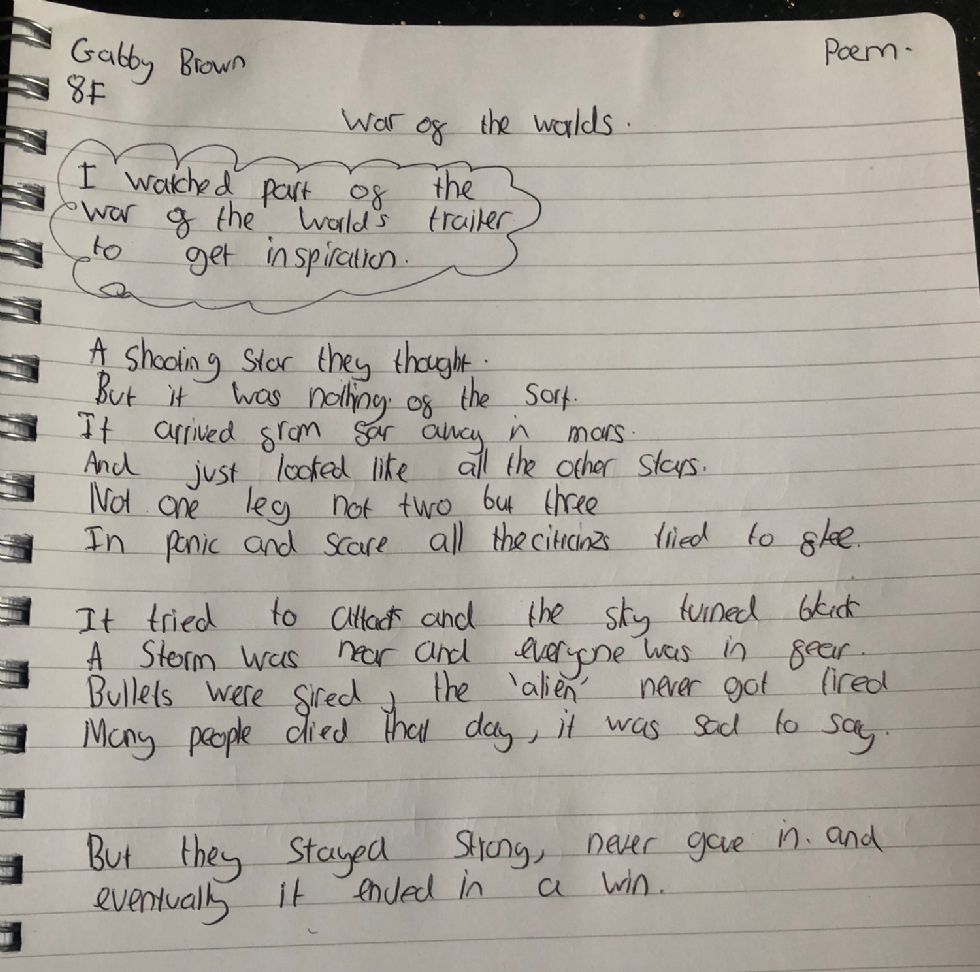 Gabby Brown
Poem.
8F
War of the worlds.
I watched part of the
war of the world's trailer
to get inspiration.
A shooting star they thought.
But it was nothing of the sort.
It arrived from far away in mars.
And just looked like all the other stars.
Not one leg not two but three
In panic and scare all the citicinzs tried to flee.
It tried to attack and the sky turned black
A storm was near and everyone was in fear.
Bullets were fired, the 'alien' never got tired
Many people died that day, it was sad to say.
But they stayed strong, never gave in. and
eventually it ended in a win.